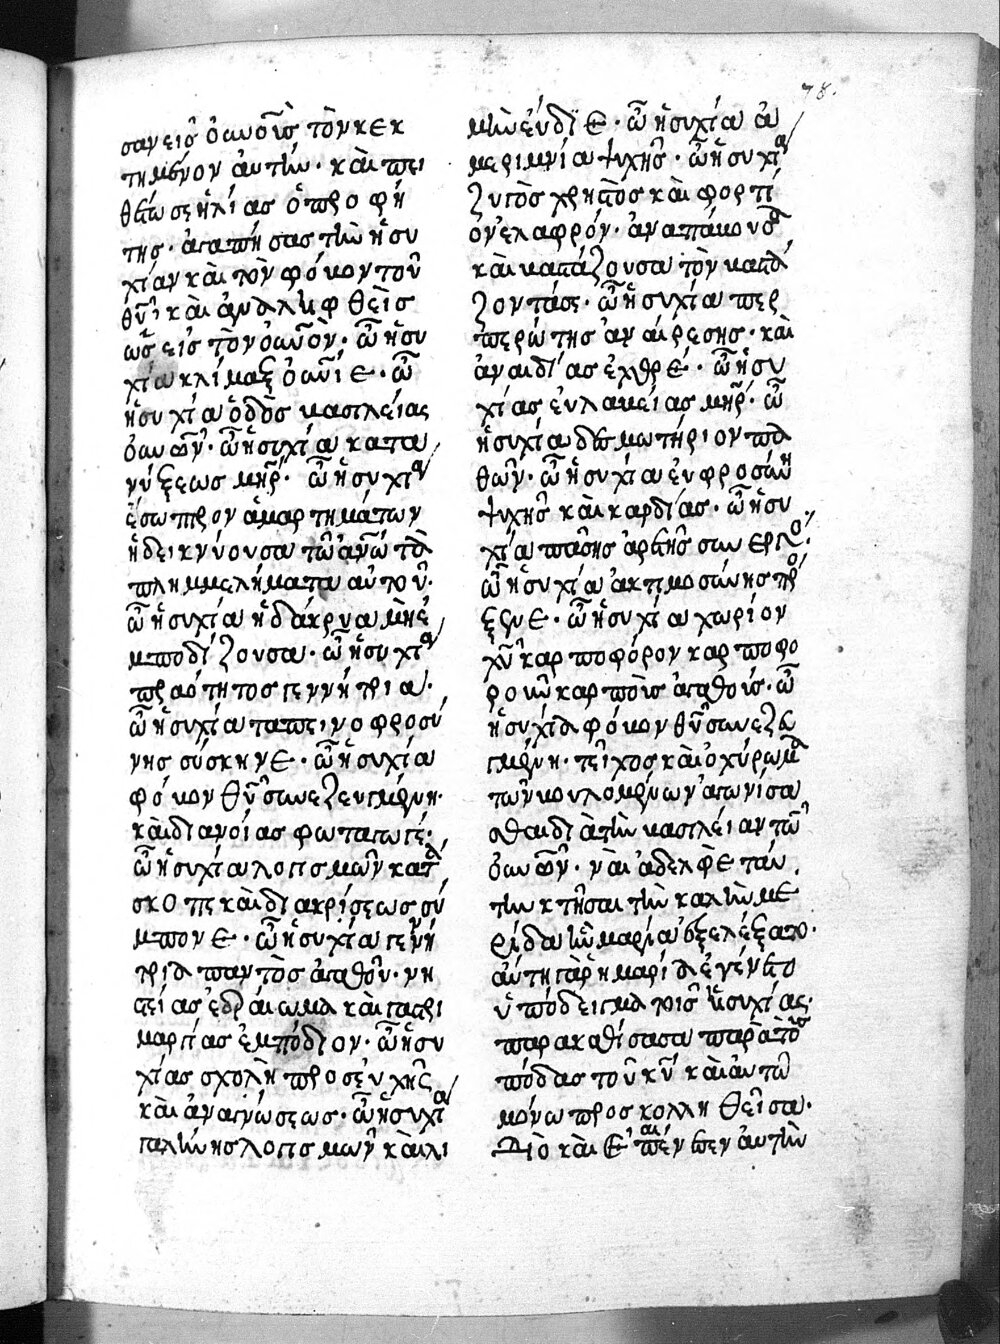 78.
σαν εἰς οὐνοῖς τὸν κεκ
τημένον αὐτήν· καὶ πει
θέτω σε ἠλίας ὁ προφή
της· ἀγαπήσας τὴν ἡσυ
χίαν καὶ τὸν φόβον τοῦ
θῦ· καὶ ἀναληφθεὶς
ὡς εἰς τὸν οὐνὸν· ὦ ἡσυ
χία κλίμαξ οὐνίε· ὦ
ἡσυχία ὁδὸς βασιλείας
οὐνῶν· ὦ ἡσυχία κατα
νύξεως μῆρ· ὦ ἡσυχία
ἔσωπτρον ἁμαρτημάτων
ἡ δεικνύουσα τῶ ἀνῶ τὰ
πλημμελήματα αὐτοῦ·
ὦ ἡσυχία ἡ δάκρυα μὴ ἐ
μποδίζουσα· ὦ ἡσυχία
πραότητος γεννήτρια·
ὦ ἡσυχία ταπεινοφροσύ
νης σύσκηνε· ὦ ἡσυχία
φόβον θῦ συνεζευγμένη·
καὶ διανοίας φωταγωγέ·
ὦ ἡσυχία λογισμῶν κατά
σκοπε καὶ διακρίσεως σύ
μπονε· ὦ ἡσυχία γεννή
τρια παντὸς ἀγαθοῦ· νη
στείας ἑδραίωμα καὶ γαστρι
μαργίας ἐμπόδιον· ὦ ἡσυ
χίας σχολὴ προσευχῆς
καὶ ἀναγνώσεως· ὦ ἡσυχία
γαλήνης λογισμῶν καὶ λι
μὴν εὔδιε· ὦ ἡσυχία ἀ
μεριμνία ψυχῆς· ὦ ἡσυχία
ζυγὸς χρηστὸς καὶ φορτί
ον ἐλαφρόν· ἀναπάυουσα
καὶ βαστάζουσα τὸν βαστά
ζοντά σε· ὦ ἡσυχία
ἀναιδίας ἐχθρέ· ὦ ἡσυ
χίας εὐλαβείας μῆρ· ὦ
ἡσυχία δεσμωτήριον πα
θῶν· ὦ ἡσυχία εὐφροσύνη
ψυχῆς καὶ καρδίας· ὦ ἡσυ
χία πάσης ἀρετῆς συνεργέ·
ὦ ἡσυχία ἀκτημοσύνης πρό
ξενε· ὦ ἡσυχία χωρίον
χῦ καρποφόρον καρποφο
ροῦν καρποὺς ἀγαθούς· ὦ
ἡσυχία φόβον θῦ συνεζευ
γμένη· τεῖχος καὶ ὀχύρωμα
τῶν βουλομένων ἀγωνίσα
σθαι διὰ τὴν βασιλείαν τῶν
οὐνῶν· ναὶ ἀδελφὲ ταύ
την κτῆσαι τὴν καλὴν με
ρίδα ἣν μαρία ἐξελέξατο·
αὕτη γὰρ ἡ μαρία ἐγένετο
ὑπόδειγμα τῆς ἡσυχίας·
παρακαθίσασα παρὰ τοὺς
πόδας τοῦ κῦ καὶ αὐτῶ
μόνω προσκολληθεῖσα·
Διὸ καὶ ἐπαίνεσεν αὐτὴν